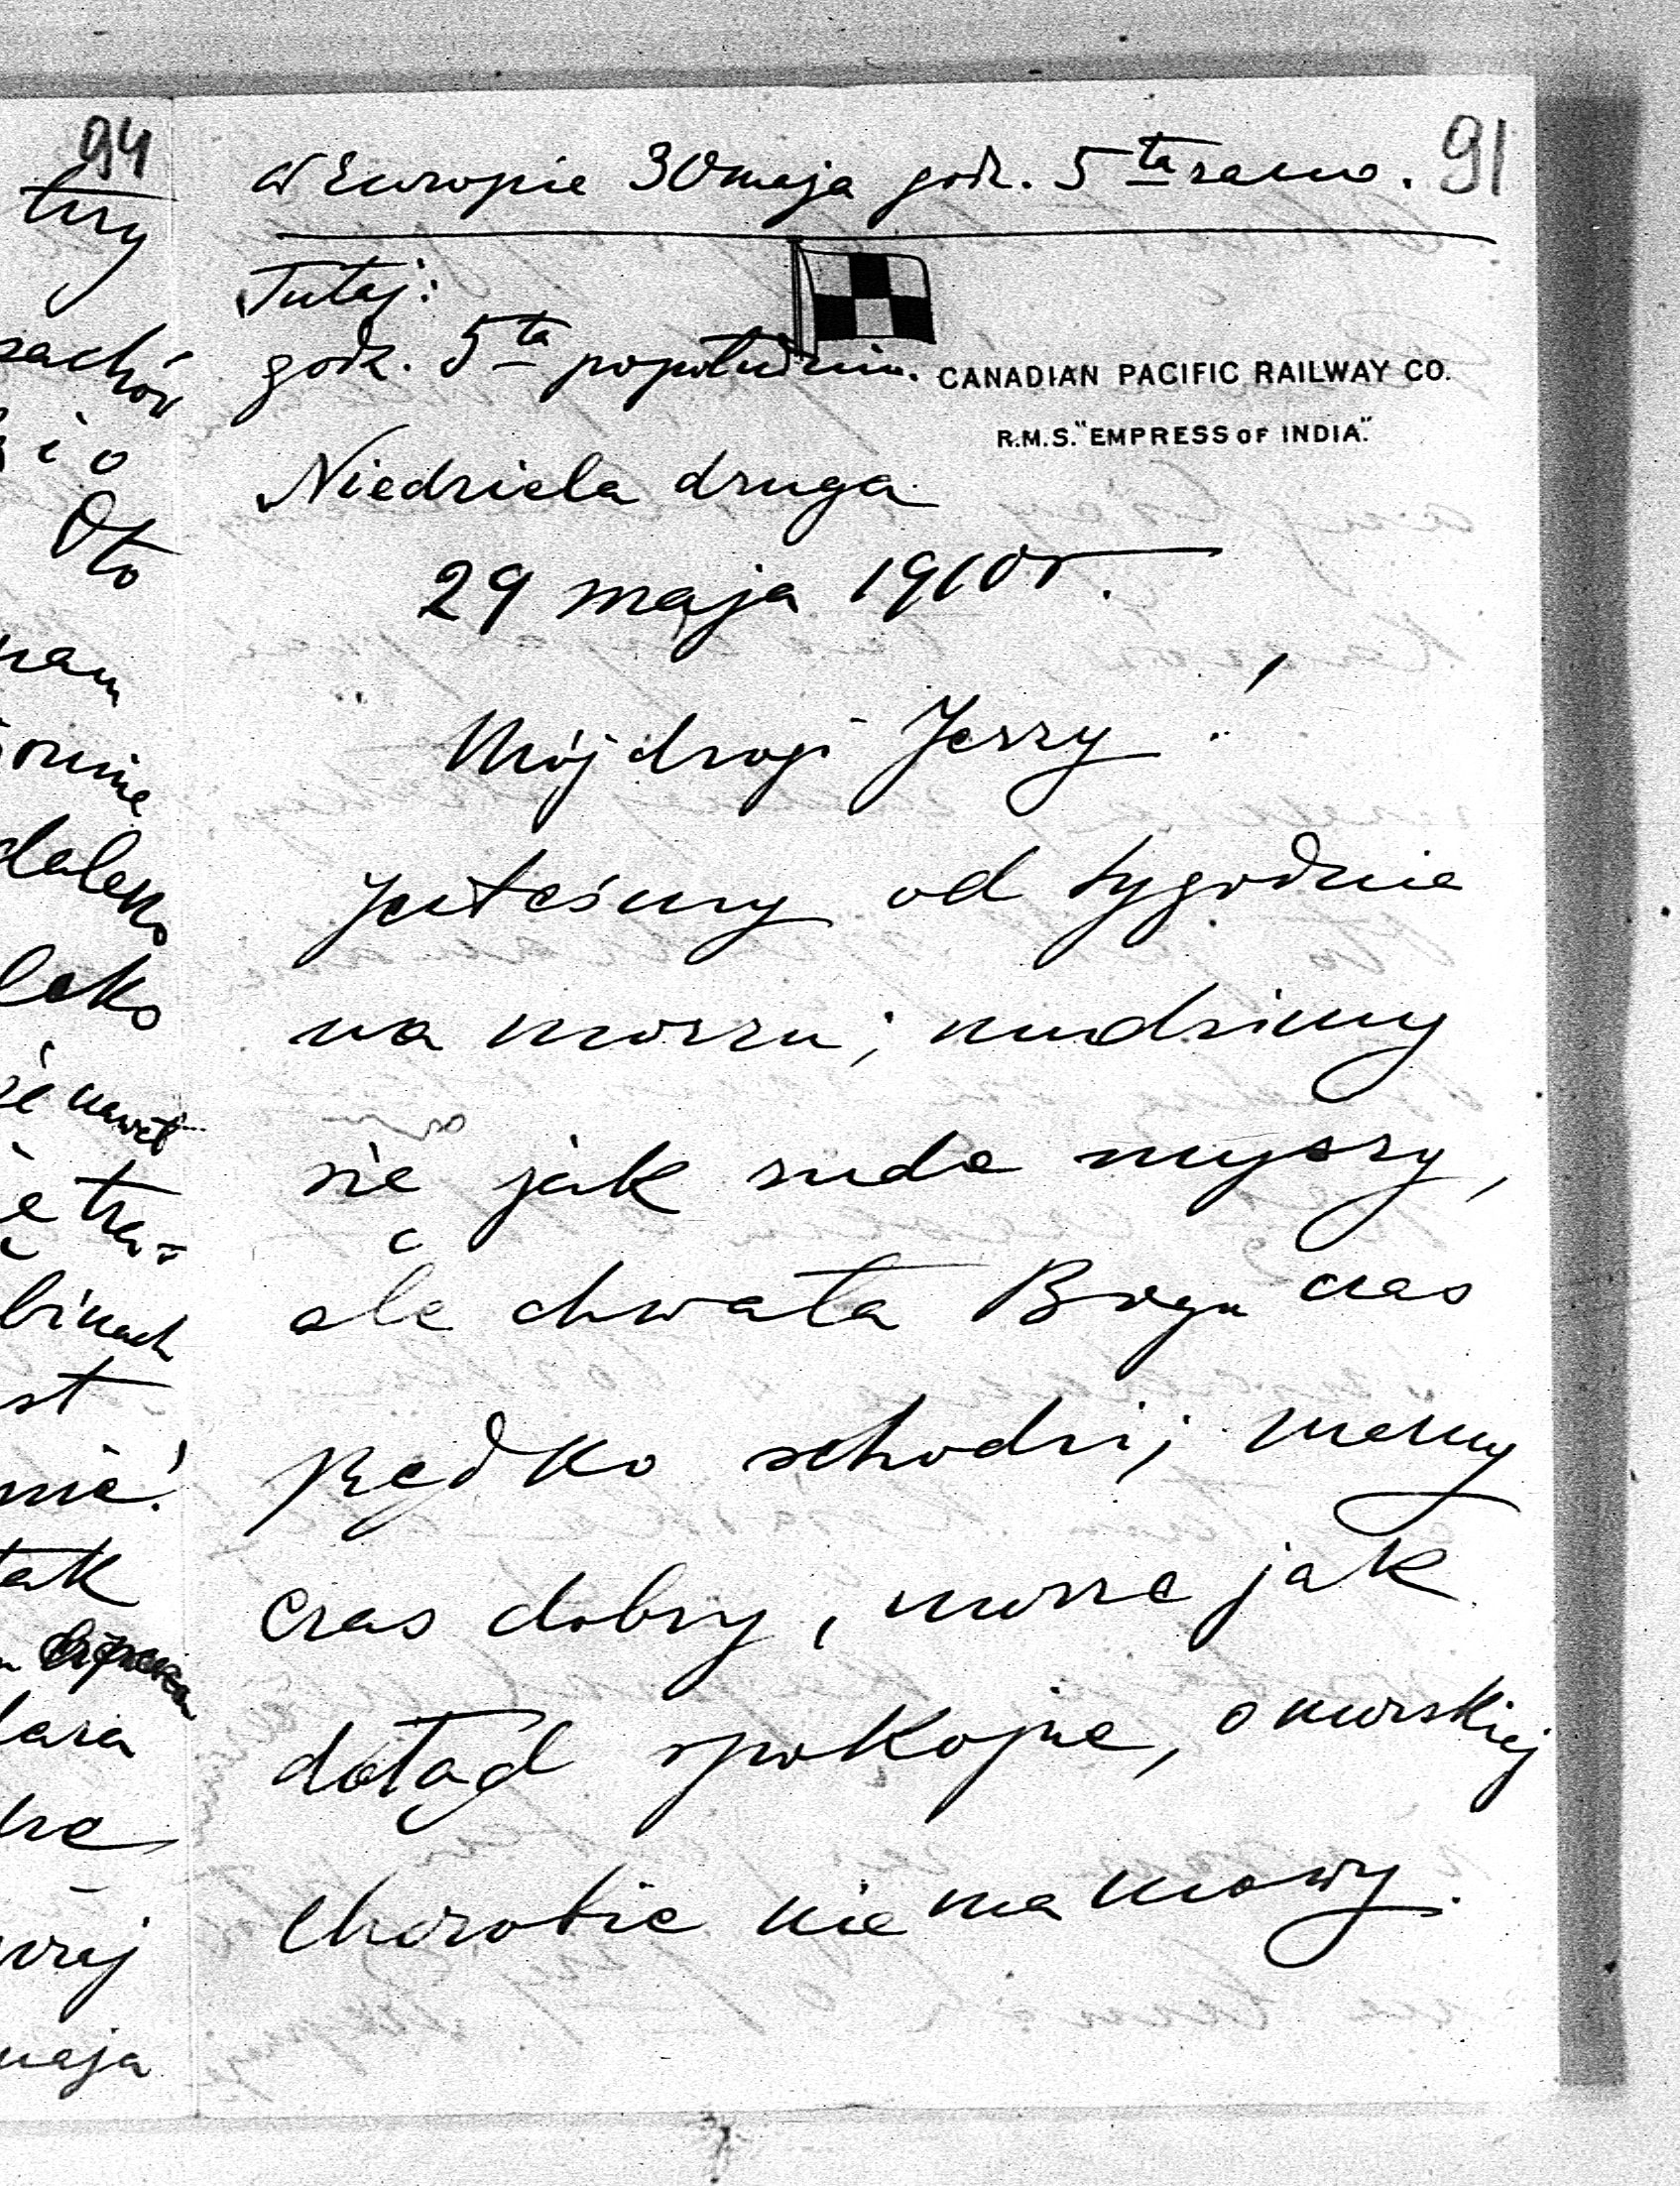 94
try
Oto
daleko
leko
że nawet
binach
st
tak
maja
w Europie 30 maja godz. 5ta rano. 91
Tutaj:
godz. 5ta popołudniu.
CANADIAN PACIFIC RAILWAY CO.
R.M.S. "EMPRESS OF INDIA."
Niedziela druga
29 maja 1910 r.
Mój drogi Jerzy!
jesteśmy od tygodnia
na morzu; nudzimy
się jak rude myszy,
ale chwała Bogu czas
prędko schodzi; mamy
czas dobry, morze jak
dotąd spokojne, o morskiej
chorobie nie ma mowy.